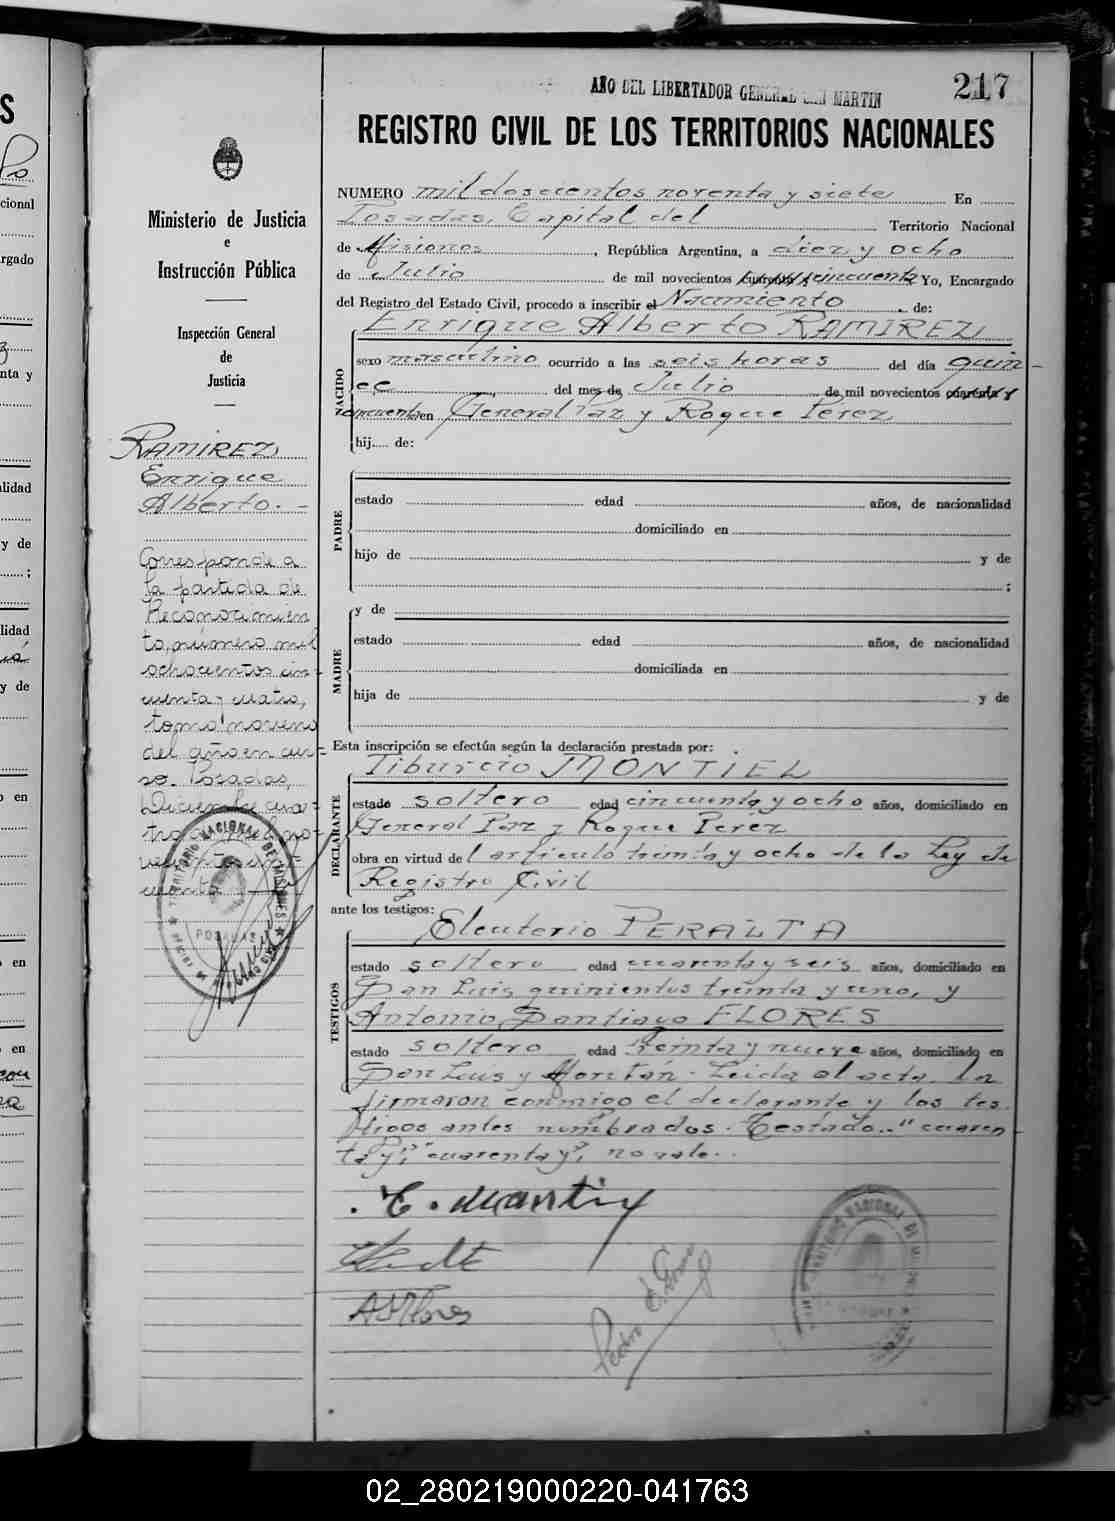 AÑO DEL LIBERTADOR GENERAL SAN MARTIN
217
REGISTRO CIVIL DE LOS TERRITORIOS NACIONALES
Ministerio de Justicia
e
Instrucción Pública
Inspección General
de
Justicia
RAMIREZ
Enrique
Alberto.-
Corresponde a
la partida de
Reconocimien
to, número mil
ochocientos cin-
cuenta y cuatro,
tomo noveno
del año en cur-
so. Posadas,
Diciembre cua-
TERRITORIO NACIONAL DE MISIONES
POSADAS
NUMERO mil doscientos noventa y siete En
Posadas, Capital del Territorio Nacional
de Misiones, República Argentina, a diez y ocho
de Julio de mil novecientos cuarenta y cincuenta Yo, Encargado
del Registro del Estado Civil, procedo a inscribir el Nacimiento de:
Enrique Alberto RAMIREZ
NACIDO
sexo masculino ocurrido a las seis horas del día quin-
ce del mes de Julio de mil novecientos cuarenta y
cincuenta en General Paz y Roque Perez
hij..... de:
PADRE
estado edad años, de nacionalidad
domiciliado en
hijo de y de
;
MADRE
y de
estado edad años, de nacionalidad
domiciliada en
hija de y de
Esta inscripción se efectúa según la declaración prestada por:
DECLARANTE
Tiburcio MONTIEL
estado soltero edad cincuenta y ocho años, domiciliado en
General Paz y Roque Perez
obra en virtud del articulo treinta y ocho de la Ley de
Registro Civil
ante los testigos:
TESTIGOS
Eleuterio PERALTA
estado soltero edad cuarenta y seis años, domiciliado en
San Luis quinientos treinta y uno, y
Antonio Santiago FLORES
estado soltero edad treinta y nueve años, domiciliado en
San Luis y . Leida el acta, la
firmaron conmigo el declarante y los tes
tigos antes nombrados. Testado.. "cuaren
ta y", "cuarenta y", no vale..
A S Flores
Pedro
02_280219000220-041763